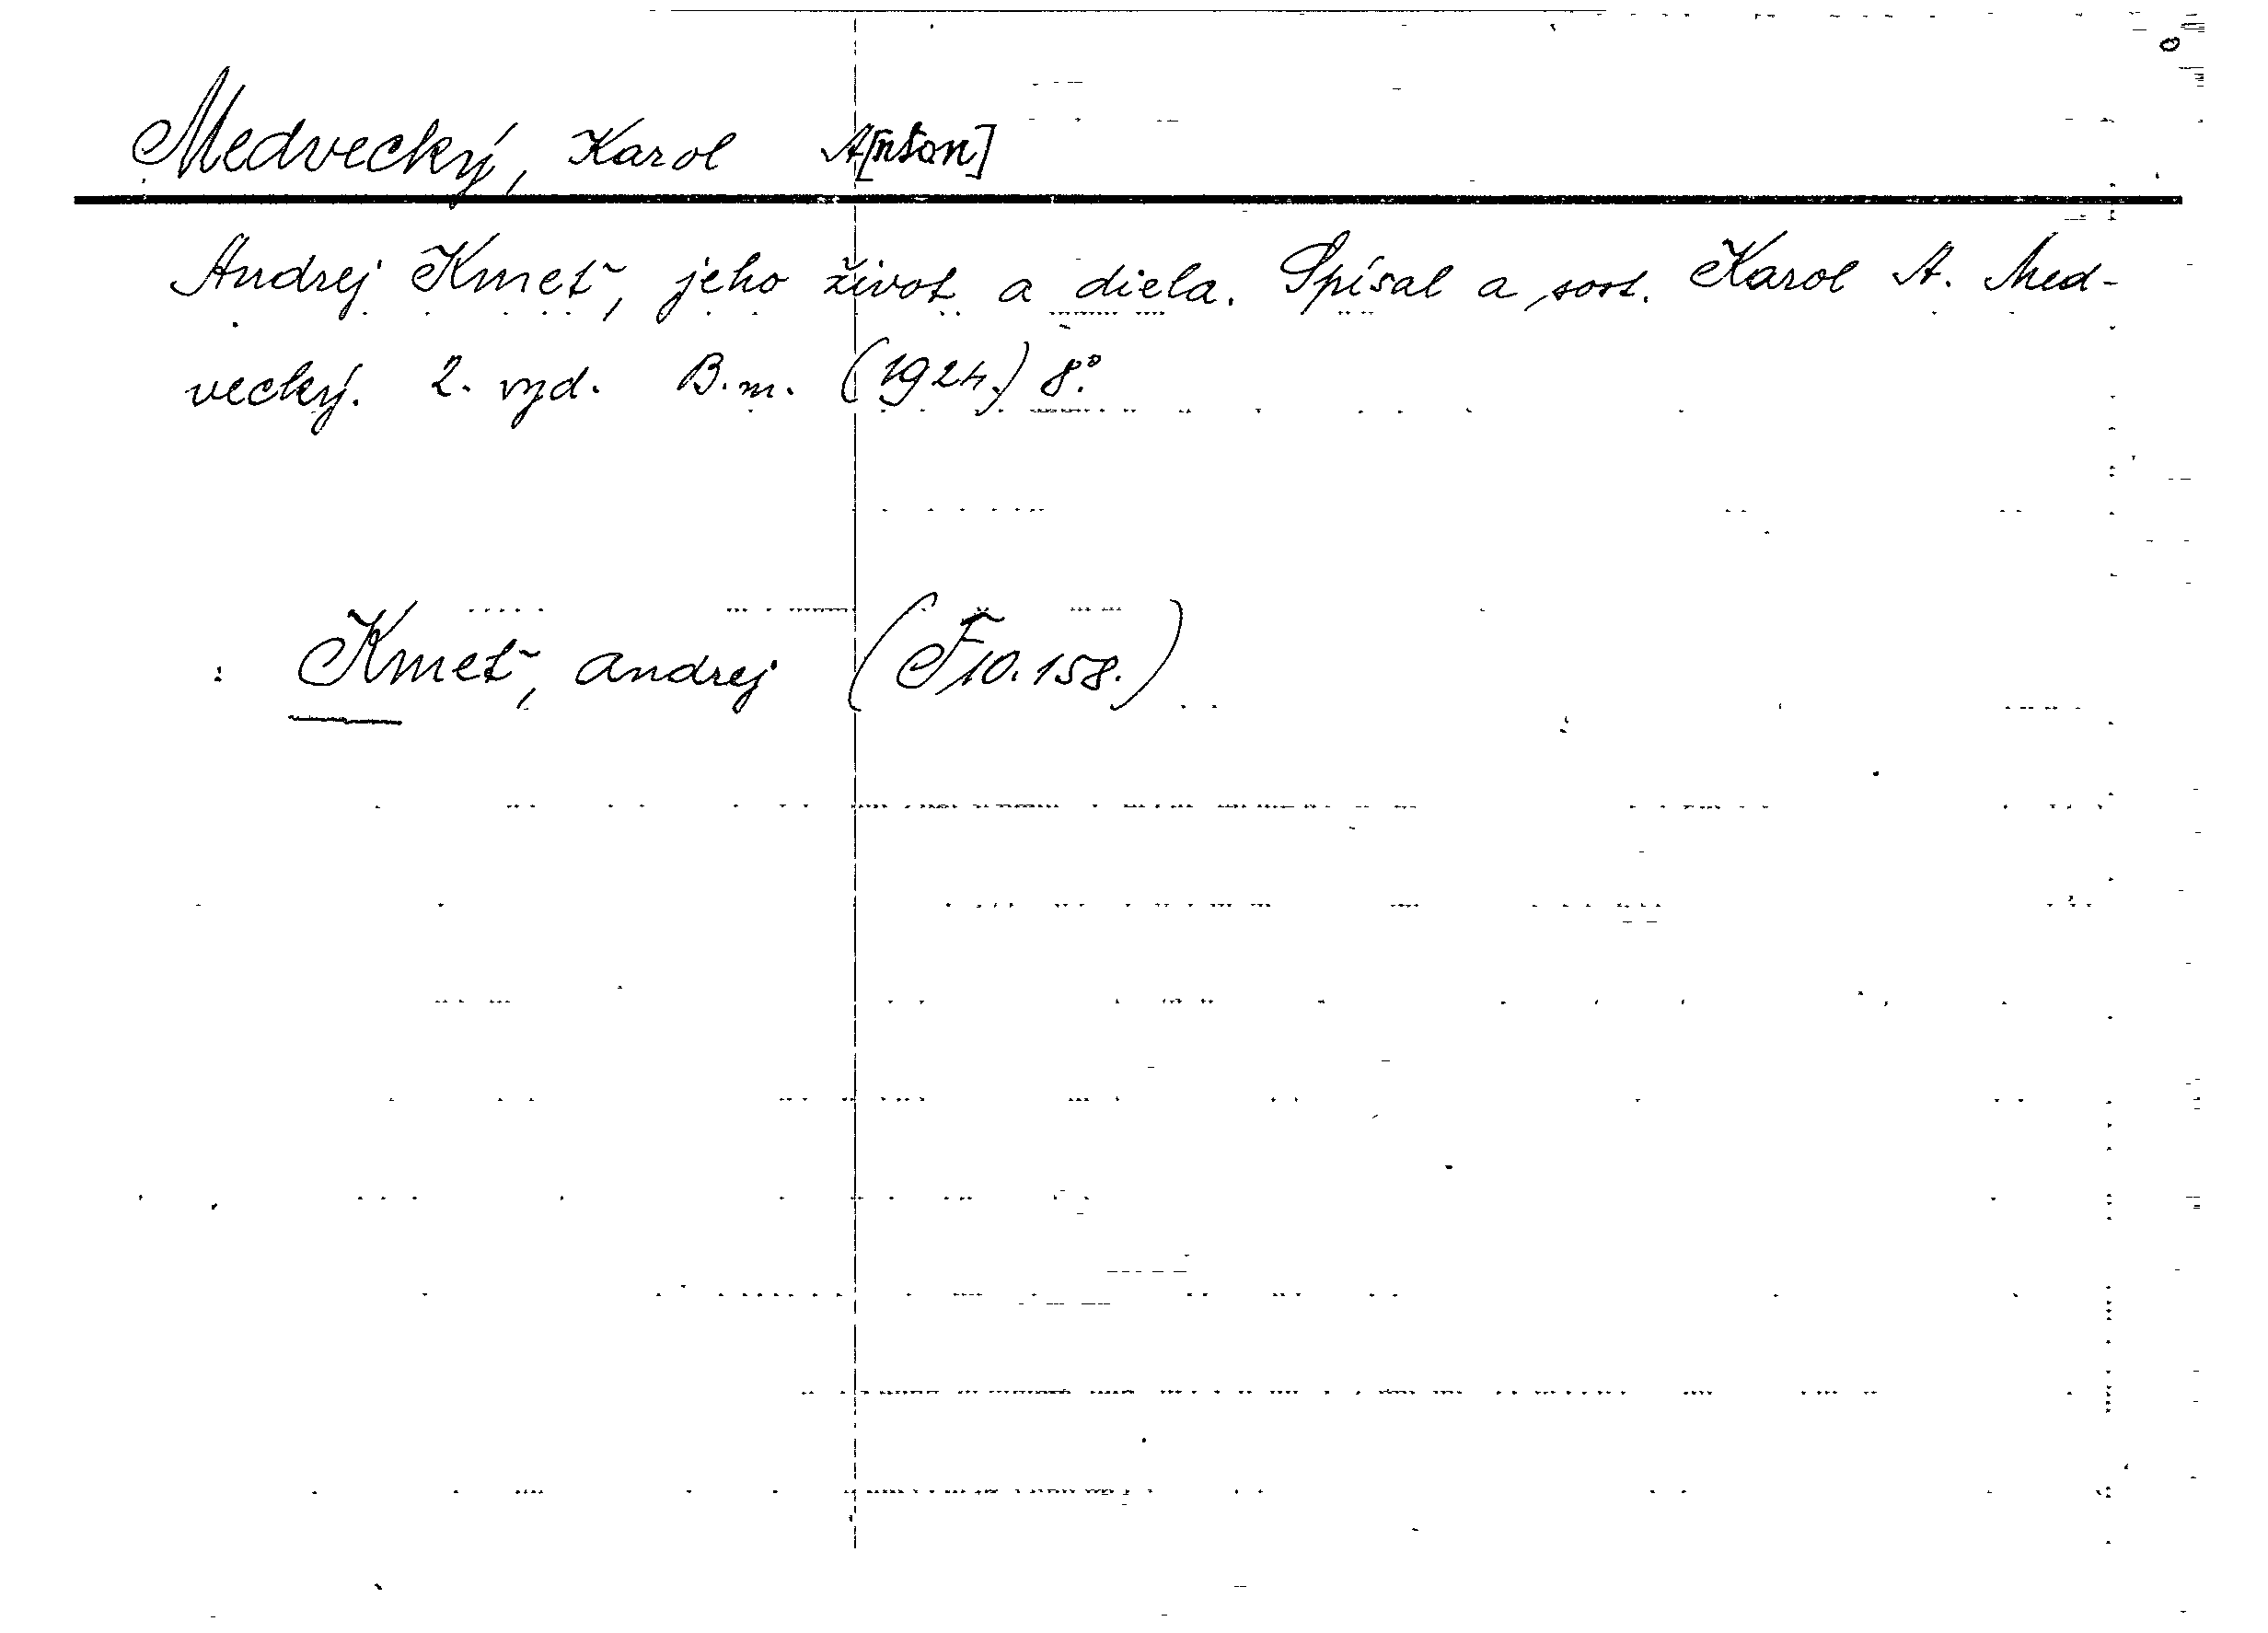 Medvecký, Karol A[nton]
Andrej Kmeť, jeho život a diela. Spísal a sost. Karol A. Med-
vecký. 2. vyd. B.m. (1924.) 8°.
: Kmeť, Andrej (F 10.158.)